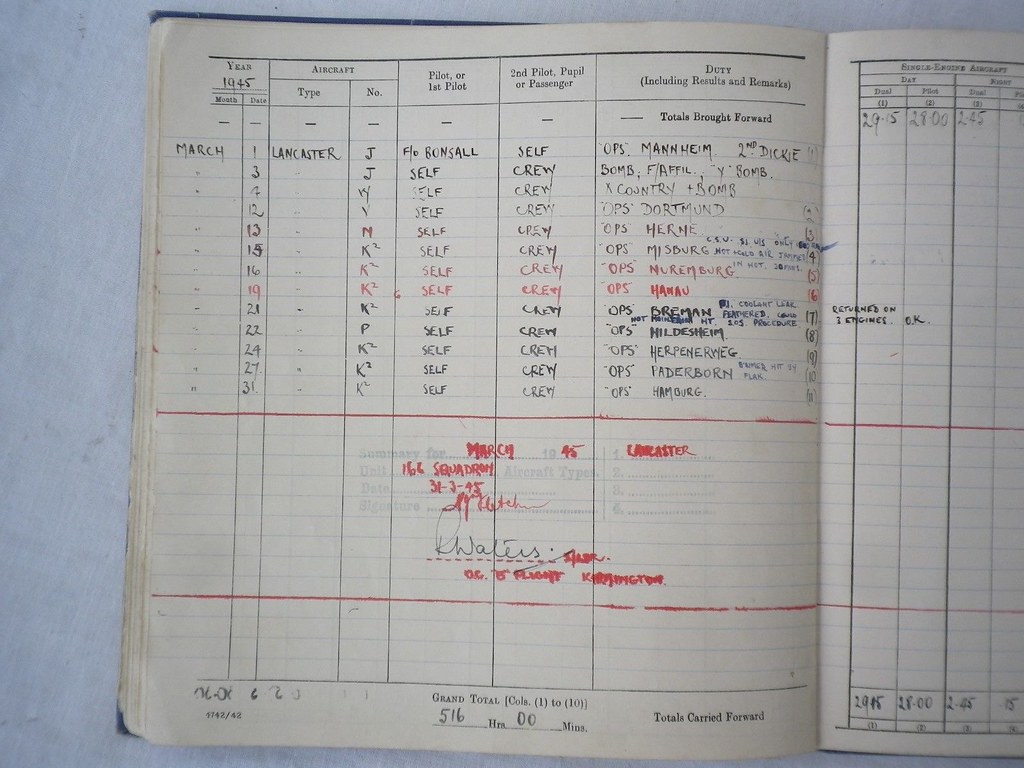 YEAR 1945 AIRCRAFT Pilot, or 1st Pilot 2nd Pilot, Pupil or Passenger DUTY (Including Results and Remarks)
Month Date Type No.
— — — — — — —— Totals Brought Forward
MARCH 1 LANCASTER J F/O BONSALL SELF "OPS" MANNHEIM. 2ND DICKIE (1)
" 3 " J SELF CREW BOMB, F/AFFIL, "Y" BOMB.
" 7 " W SELF CREW X COUNTRY + BOMB
" 12 " V SELF CREW "OPS" DORTMUND (2)
" 13 " N SELF CREW "OPS" HERNE (3)
" 15 " K² SELF CREW "OPS" MISBURG (4)
" 16 " K² SELF CREW "OPS" NUREMBURG (5)
" 19 " K² SELF CREW "OPS" HANAU (6)
" 21 " K² SELF CREW "OPS" BREMAN COOLANT LEAK FEATHERED. COULD (7)
NOT MAINTAIN HT. SOS PROCEDURE.
" 22 " P SELF CREW "OPS" HILDESHEIM. (8)
" 24 " K² SELF CREW "OPS" HERPENERWEG. (9)
" 27 " K² SELF CREW "OPS" PADERBORN HIT BY FLAK. (10)
" 31 " K² SELF CREW "OPS" HAMBURG. (11)
Summary for MARCH 1945 1. LANCASTER
Unit 166 SQUADRON Aircraft Types 2.
Date 31-3-45 3.
Signature 4.
Waters. S/LDR.
O.C. "B" FLIGHT KIRMINGTON.
GRAND TOTAL [Cols. (1) to (10)]
516 Hrs. 00 Mins.
Totals Carried Forward
1742/42
SINGLE-ENGINE AIRCRAFT
DAY NIGHT
Dual Pilot Dual
(1) (2) (3)
29.15 28.00 2.45
RETURNED ON
2 ENGINES. O.K.
29.15 28.00 2.45 .15
(1) (2) (3) (4)